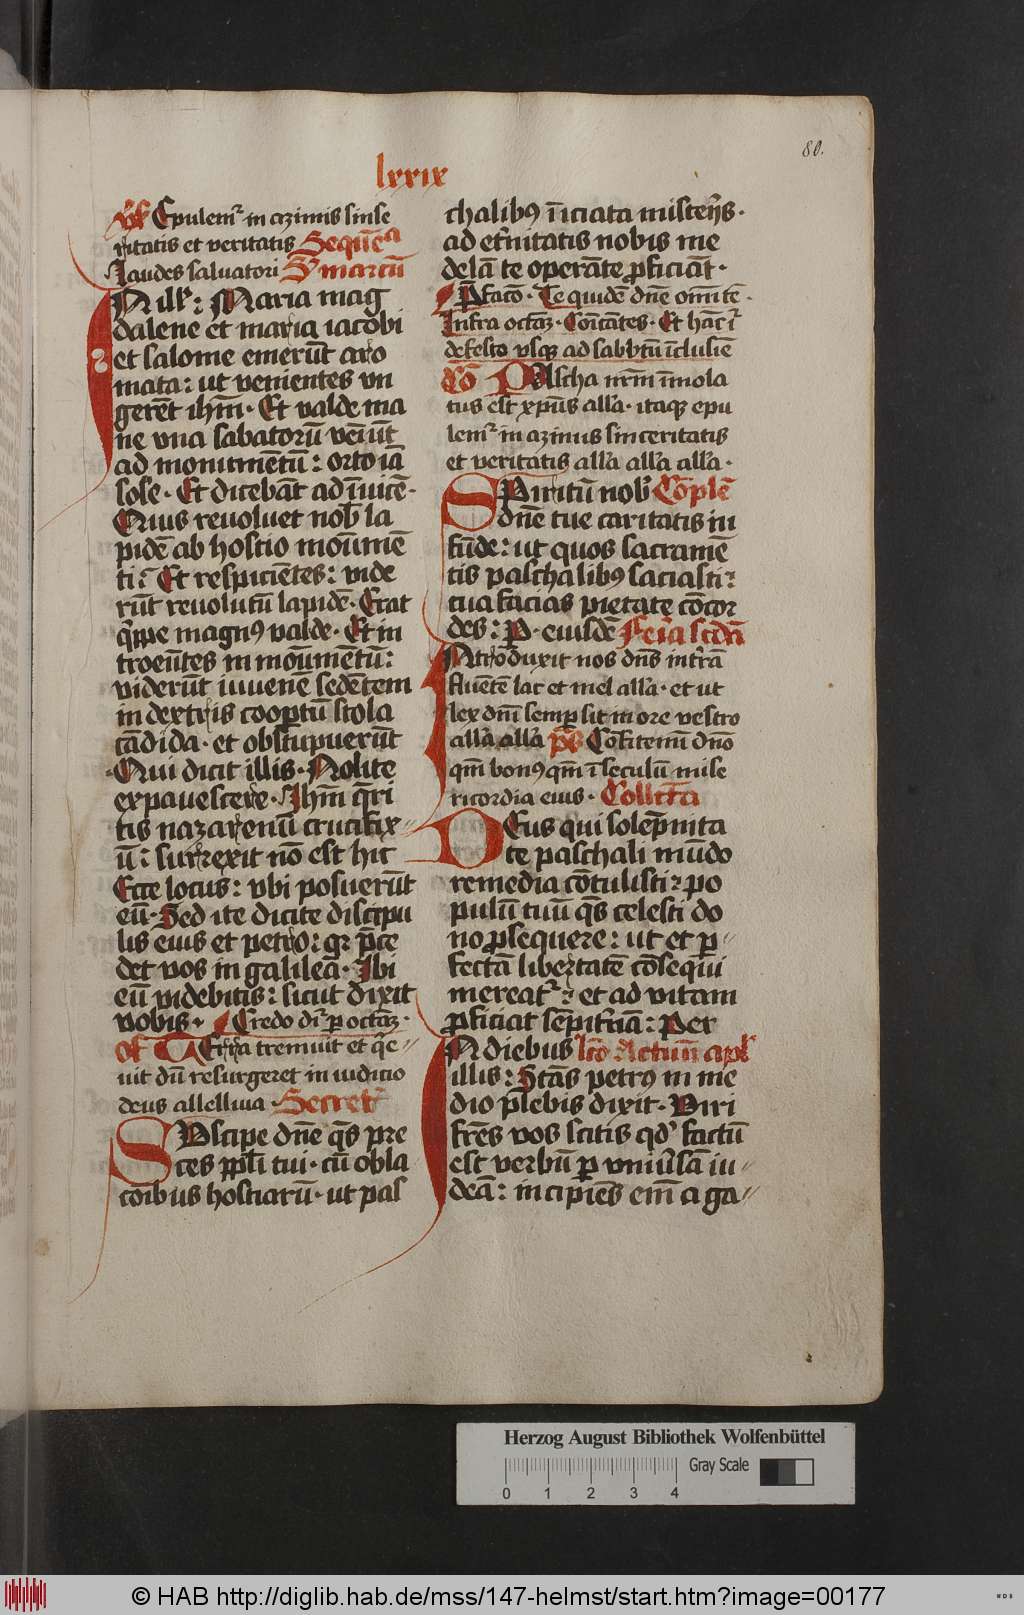 lxxix
80.
℣ Epulem᷑ in azimis since
ritatis et veritatis Sequēᵃ
Laudes saluatori S᷑ marcū
IN illꝰ: Maria mag
dalene et maria iacobi
et salome emerūt aro
mata: ut venientes vn
gerēt ihm̄. Et valde ma
ne vna sabatorū veīūt
ad monumētū: orto iā
sole. Et dicebāt ad īuicē.
Quis reuoluet nob̄ la
pidē ab hostio mōumē
ti? Et respiciētes: vide
rūt reuolutū lapidē. Erat
q̄ppe magnꝰ valde. Et in
troeūtes in mōumētū:
viderūt iuuenē sedētem
in dextris cooꝑtū stola
cādida. et obstupuerūt
Qui dicit illis. Nolite
expauescere. Ihm̄ q̄ri
tis nazarenū crucifix
ū: surrexit nō est hic
Ecce locus: vbi posuerūt
eū. Sed ite dicite discipu
lis eius et petro: qꝛ p̄ce
det vos in galileā. Ibi
eū videbitis: sicut dixit
vobis. Credo dr̄ ꝑ octaꝫ.
Of TErra tremuit et q̄e
uit dū resurgeret in iudicio
deus allelluia. Secret᷑
SVscipe dn̄e q̄s pre
ces ppl̄i tui. cū obla
cōibus hostiarū. ut pas
chalibꝰ īiciata misterijs.
ad et̄nitatis nobis me
delā te operāte ꝓficiāt.
P̄facō. Te quidē dn̄e om̄i tē.
Infra octaꝫ. Cōicātes. Et hāc i᷑
de festo vsqꝫ ad sabbtū īclusiē
Cō PAscha nr̄m īmola
tus est xp̄us all̄a. itaqꝫ epu
lem᷑ in azimis sinceritatis
et veritatis all̄a all̄a all̄a.
SPiritū nob᷑ Cōplē
dn̄e tue caritatis in
fūde: ut quos sacramē
tis paschalibꝰ saciasti:
tua facias pietate cōcor
des: P. eiusdē Feīa scd̄a
INtroduxit nos dn̄s in tr̄ā
fluētē lac et mel all̄a. et ut
lex dn̄i semꝑ sit in ore vestro
all̄a all̄a p̄s Cōfitemī dn̄o
qm̄ bonꝰ qm̄ ī seculū mise
ricordia eius. Collecta
DEus qui solēpnita
te paschali mūdo
remedia cōtulisti: po
pulū tuū q̄s celesti do
no ꝓsequere: ut et ꝑ
fectā libertatē cōsequi
mereat᷑: et ad vitam
ꝓficiat sēpit̄nā: Per
IN diebus lc̄o Actuū apl̄
illis: Stās petrꝰ in me
dio plebis dixit. Viri
fr̄es vos scitis qd᷑ factū
est verbū ꝑ vniūsā iu
deā: incipiēs em̄ a ga
Herzog August Bibliothek Wolfenbüttel
Gray Scale
0 1 2 3 4
© HAB http://diglib.hab.de/mss/147-helmst/start.htm?image=00177